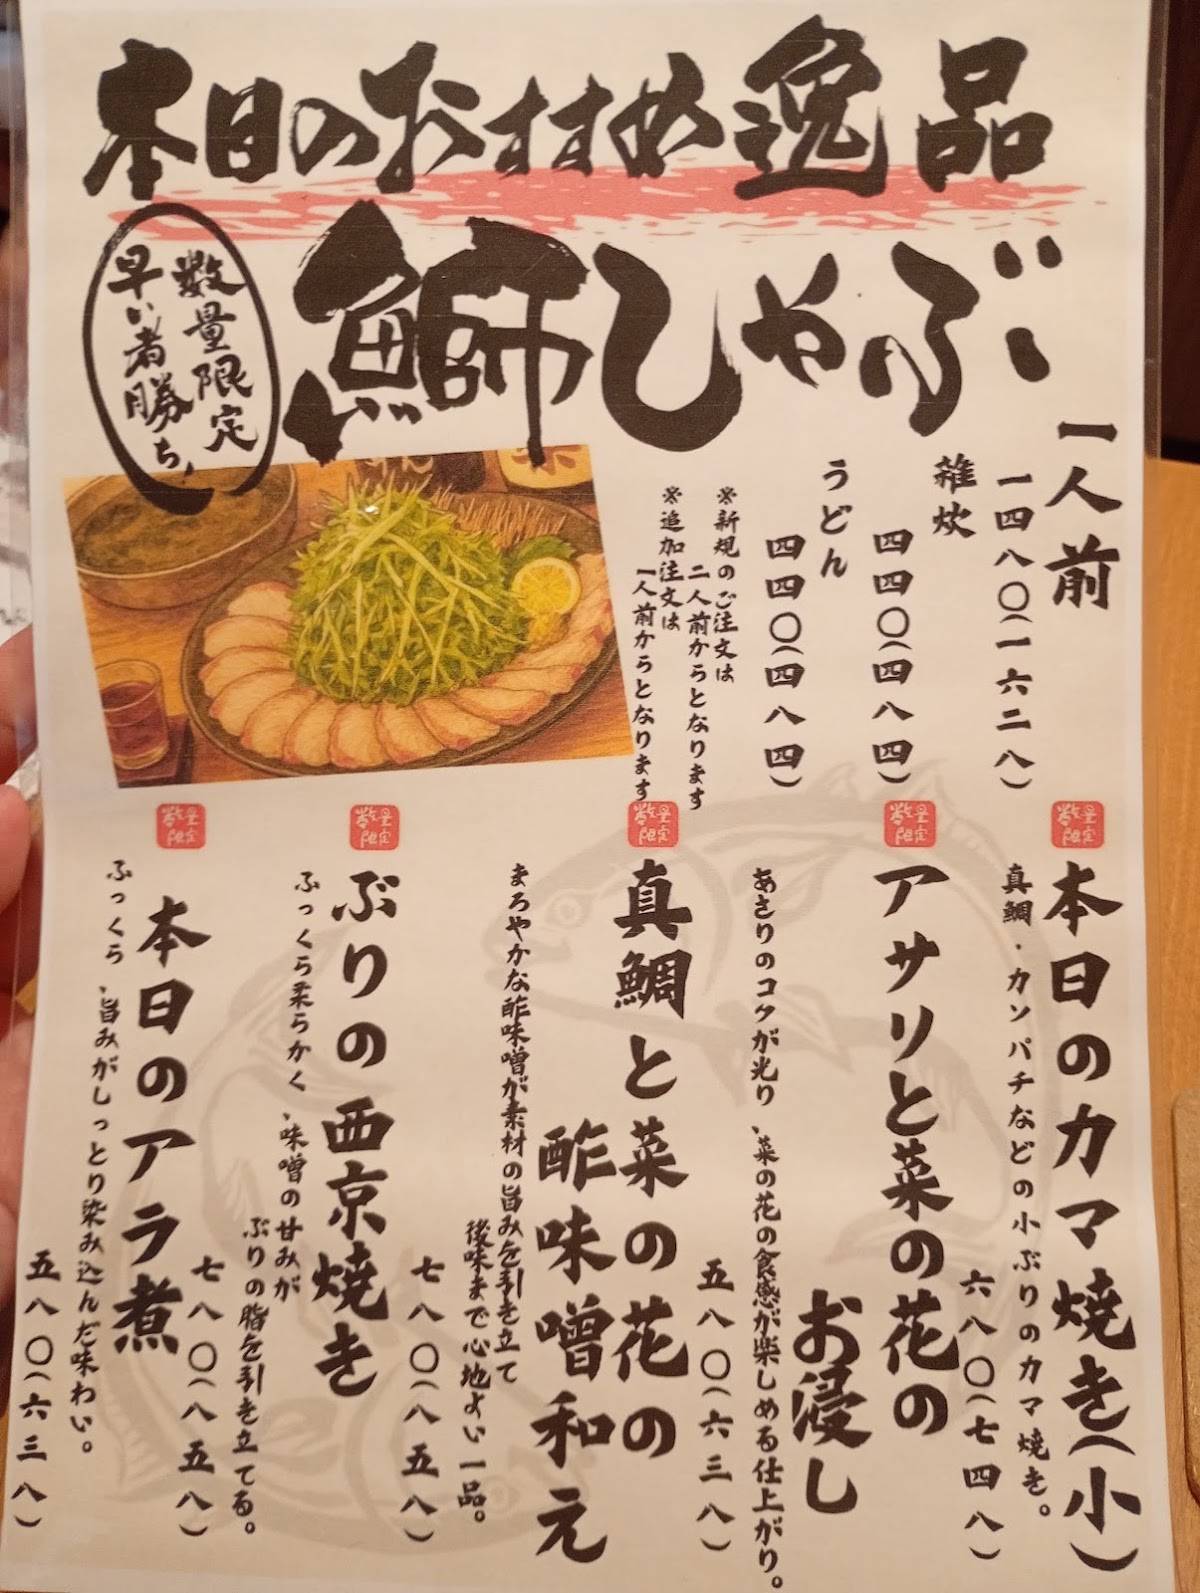 本日のおすすめ逸品
鰤しゃぶ
数量限定
早い者勝ち!
一人前
一四八〇(一六二八)
雑炊
四四〇(四八四)
うどん
四四〇(四八四)
※新規のご注文は
二人前からとなります
※追加注文は
一人前からとなります
数量限定
本日のカマ焼き(小)
真鯛・カンパチなどの小ぶりのカマ焼き。
六八〇(七四八)
数量限定
アサリと菜の花の
お浸し
あさりのコクが光り、菜の花の食感が楽しめる仕上がり。
五八〇(六三八)
数量限定
真鯛と菜の花の
酢味噌和え
まろやかな酢味噌が素材の旨みを引き立て
後味まで心地よい一品。
七八〇(八五八)
数量限定
ぶりの西京焼き
ふっくら柔らかく、味噌の甘みが
ぶりの脂を引き立てる。
七八〇(八五八)
数量限定
本日のアラ煮
ふっくら、旨みがしっとり染み込んだ味わい。
五八〇(六三八)